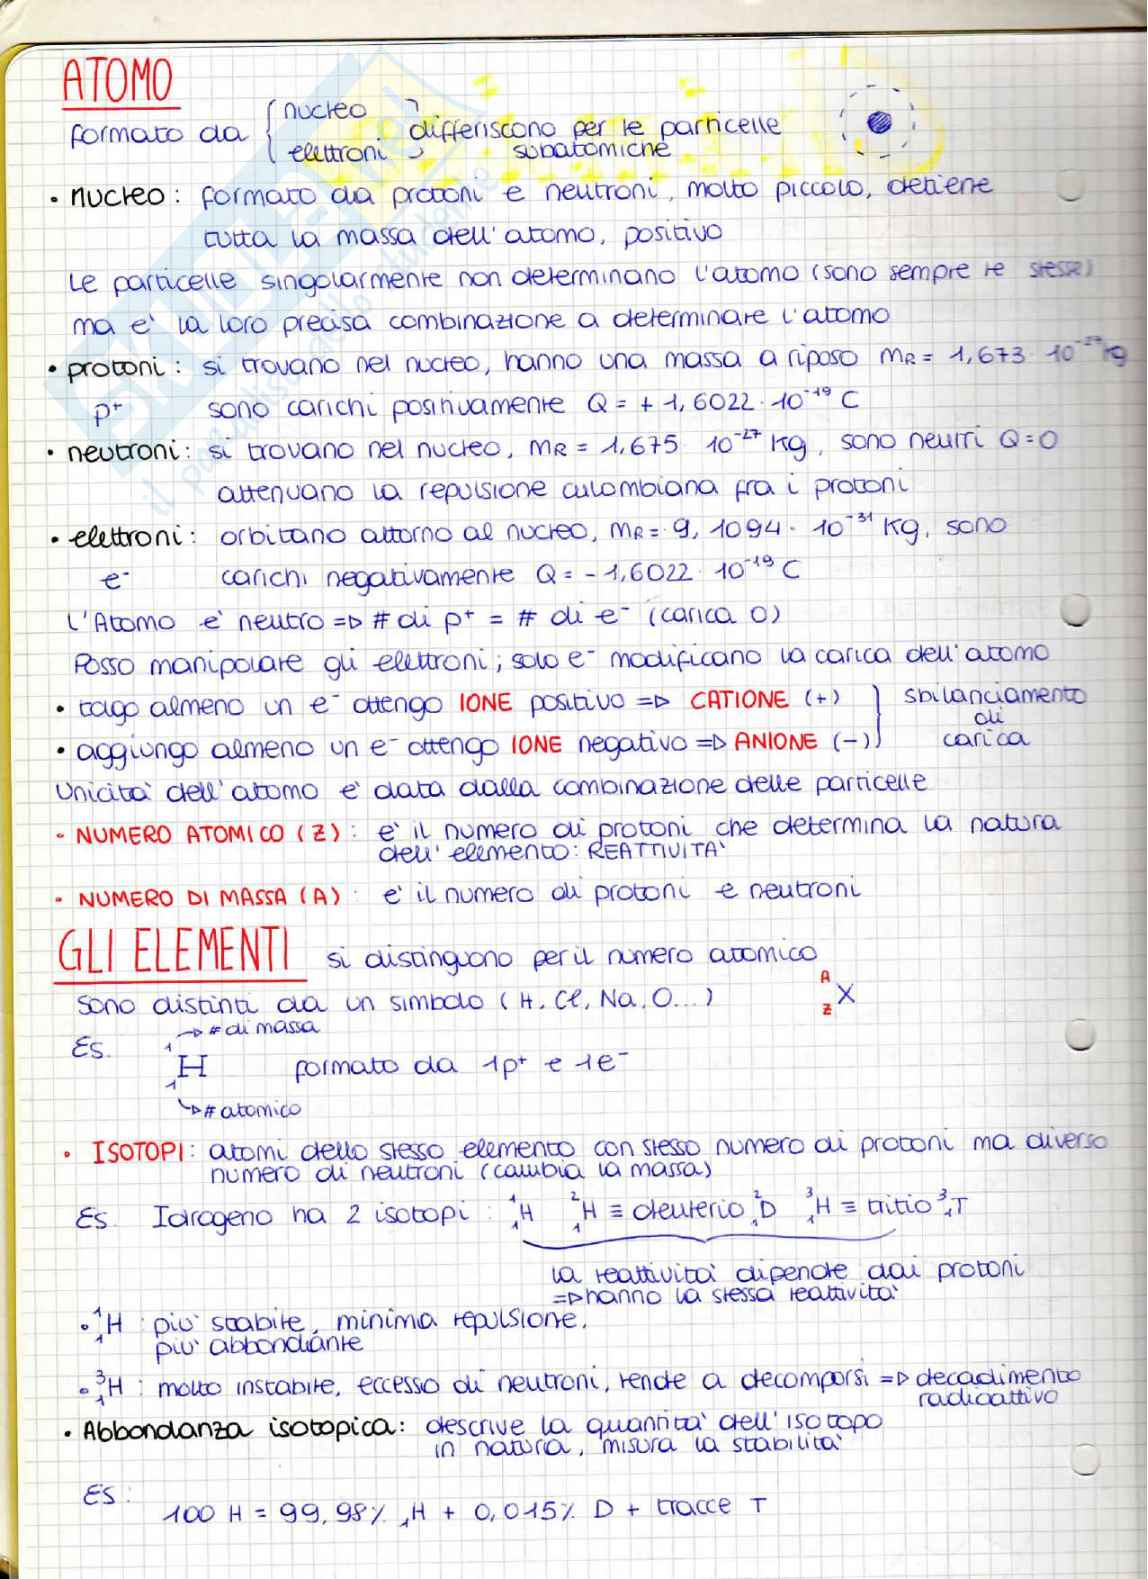 ATOMO
formato da { nucleo elettroni } differiscono per le particelle subatomiche
• nucleo: formato da protoni e neutroni, molto piccolo, detiene
tutta la massa dell'atomo, positivo
Le particelle singolarmente non determinano l'atomo (sono sempre le stesse)
ma e' la loro precisa combinazione a determinare l'atomo
• protoni: si trovano nel nucleo, hanno una massa a riposo mR = 1,673 · 10⁻²⁷ kg
p⁺ sono carichi positivamente Q = + 1,6022 · 10⁻¹⁹ C
• neutroni: si trovano nel nucleo, mR = 1,675 · 10⁻²⁷ kg, sono neutri Q=0
attenuano la repulsione culombiana fra i protoni
• elettroni: orbitano attorno al nucleo, mR = 9,1094 · 10⁻³¹ kg, sono
e⁻ carichi negativamente Q = - 1,6022 · 10⁻¹⁹ C
L'Atomo e' neutro => # di p⁺ = # di e⁻ (carica 0)
Posso manipolare gli elettroni; solo e⁻ modificano la carica dell'atomo
• tolgo almeno un e⁻ ottengo IONE positivo => CATIONE (+)
• aggiungo almeno un e⁻ ottengo IONE negativo => ANIONE (-)
} sbilanciamento
di
carica
Unicita' dell'atomo e' data dalla combinazione delle particelle
• NUMERO ATOMICO (Z): e' il numero di protoni che determina la natura
dell'elemento: REATTIVITA'
• NUMERO DI MASSA (A): e' il numero di protoni e neutroni
GLI ELEMENTI si distinguono per il numero atomico
sono distinti da un simbolo (H, Cl, Na, O...) A Z X
→ # di massa
Es. ¹₁H formato da 1p⁺ e 1e⁻
↳ # atomico
• ISOTOPI: atomi dello stesso elemento con stesso numero di protoni ma diverso
numero di neutroni (cambia la massa)
Es. Idrogeno ha 2 isotopi: ¹₁H ²₁H ≡ deuterio ²₁D ³₁H ≡ tritio ³₁T
la reattivita' dipende dai protoni
=> hanno la stessa reattivita'
• ¹₁H: piu' stabile, minima repulsione,
piu' abbondante
• ³₁H: molto instabile, eccesso di neutroni, tende a decomporsi => decadimento
radioattivo
• Abbondanza isotopica: descrive la quantita' dell'isotopo
in natura, misura la stabilita'
Es:
100 H = 99,98% ₁H + 0,015% D + tracce T